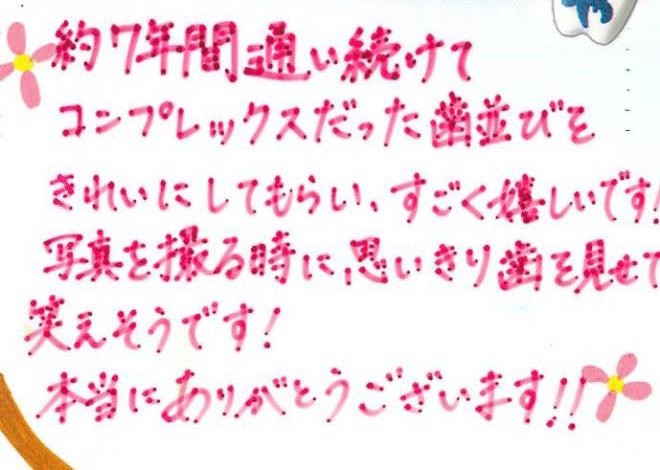 約7年間通い続けて
コンプレックスだった歯並びを
きれいにしてもらい、すごく嬉しいです!
写真を撮る時に、思いきり歯を見せて
笑えそうです!
本当にありがとうございます!!